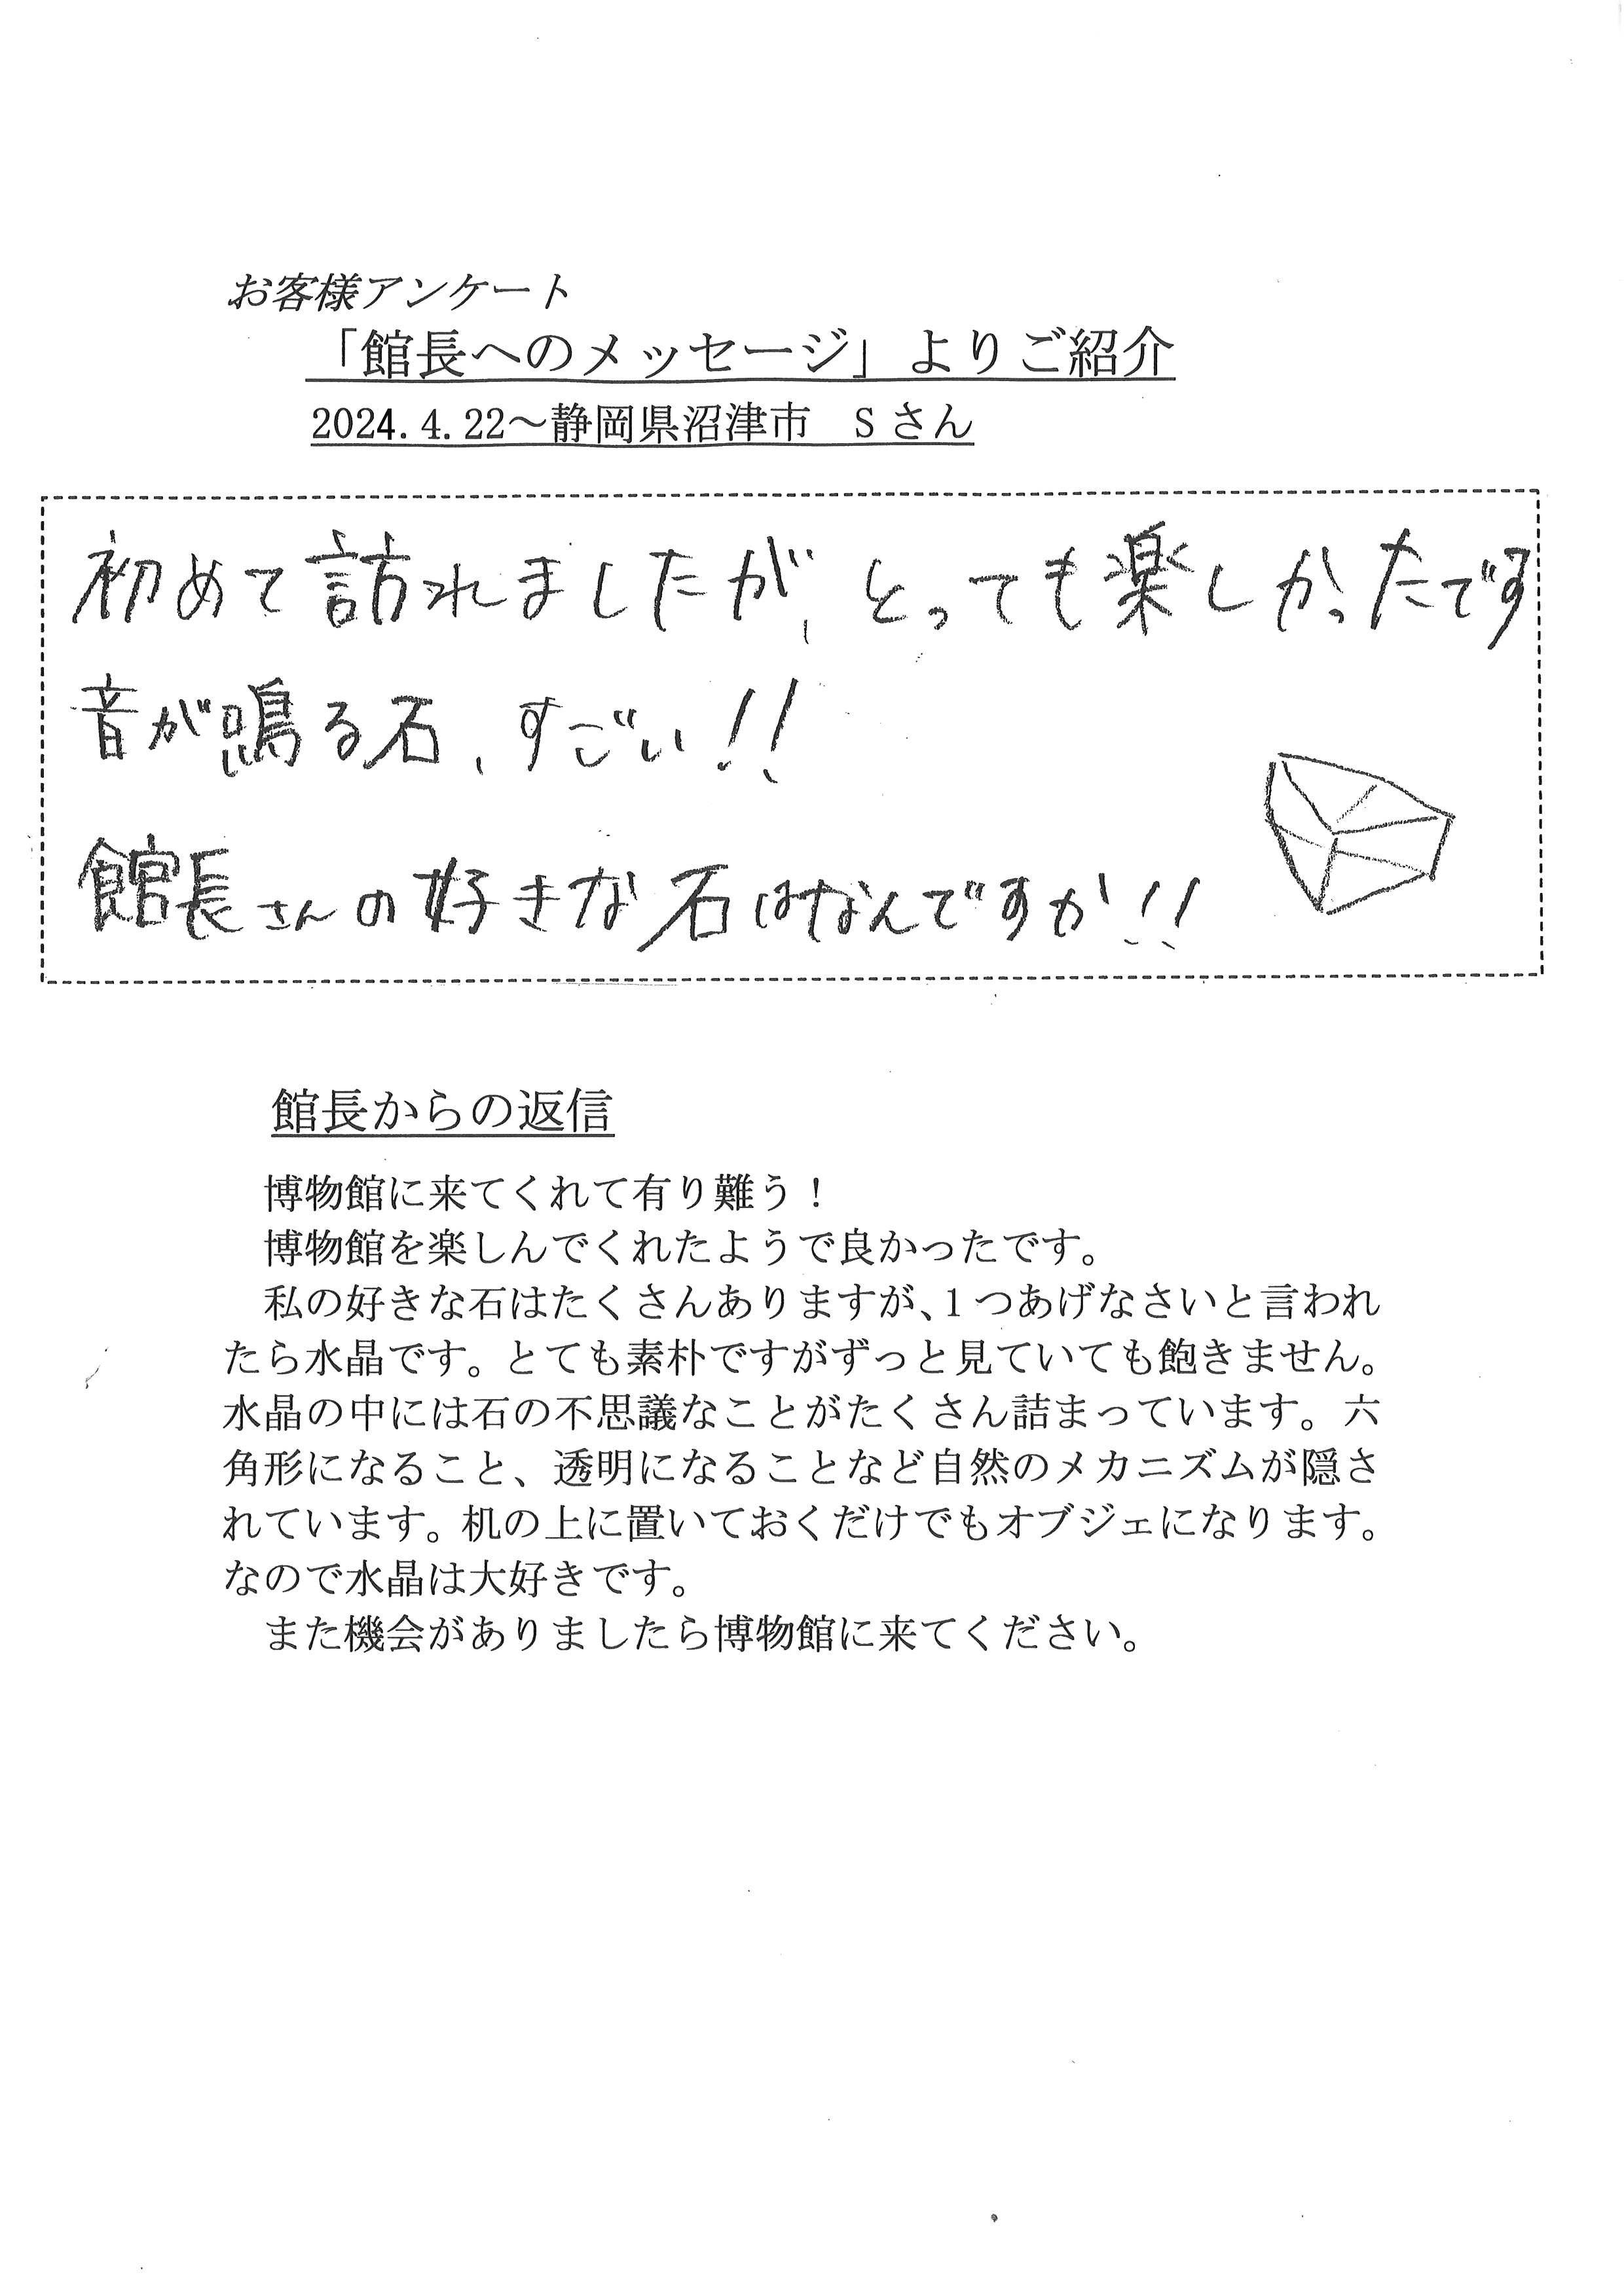 お客様アンケート
「館長へのメッセージ」よりご紹介
2024.4.22～静岡県沼津市　Sさん
初めて訪れましたが、とっても楽しかったです
音が鳴る石、すごい!!
館長さんの好きな石はなんですか!!
館長からの返信
博物館に来てくれて有り難う！
博物館を楽しんでくれたようで良かったです。
私の好きな石はたくさんありますが、1つあげなさいと言われ
たら水晶です。とても素朴ですがずっと見ていても飽きません。
水晶の中には石の不思議なことがたくさん詰まっています。六
角形になること、透明になることなど自然のメカニズムが隠さ
れています。机の上に置いておくだけでもオブジェになります。
なので水晶は大好きです。
また機会がありましたら博物館に来てください。